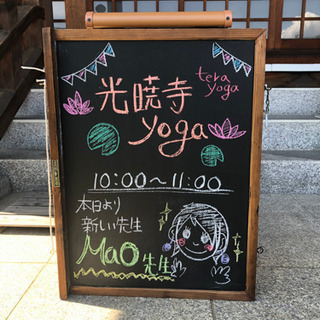 光暁寺
tera yoga
yoga
10:00〜11:00
本日より
新しい先生
MaO先生